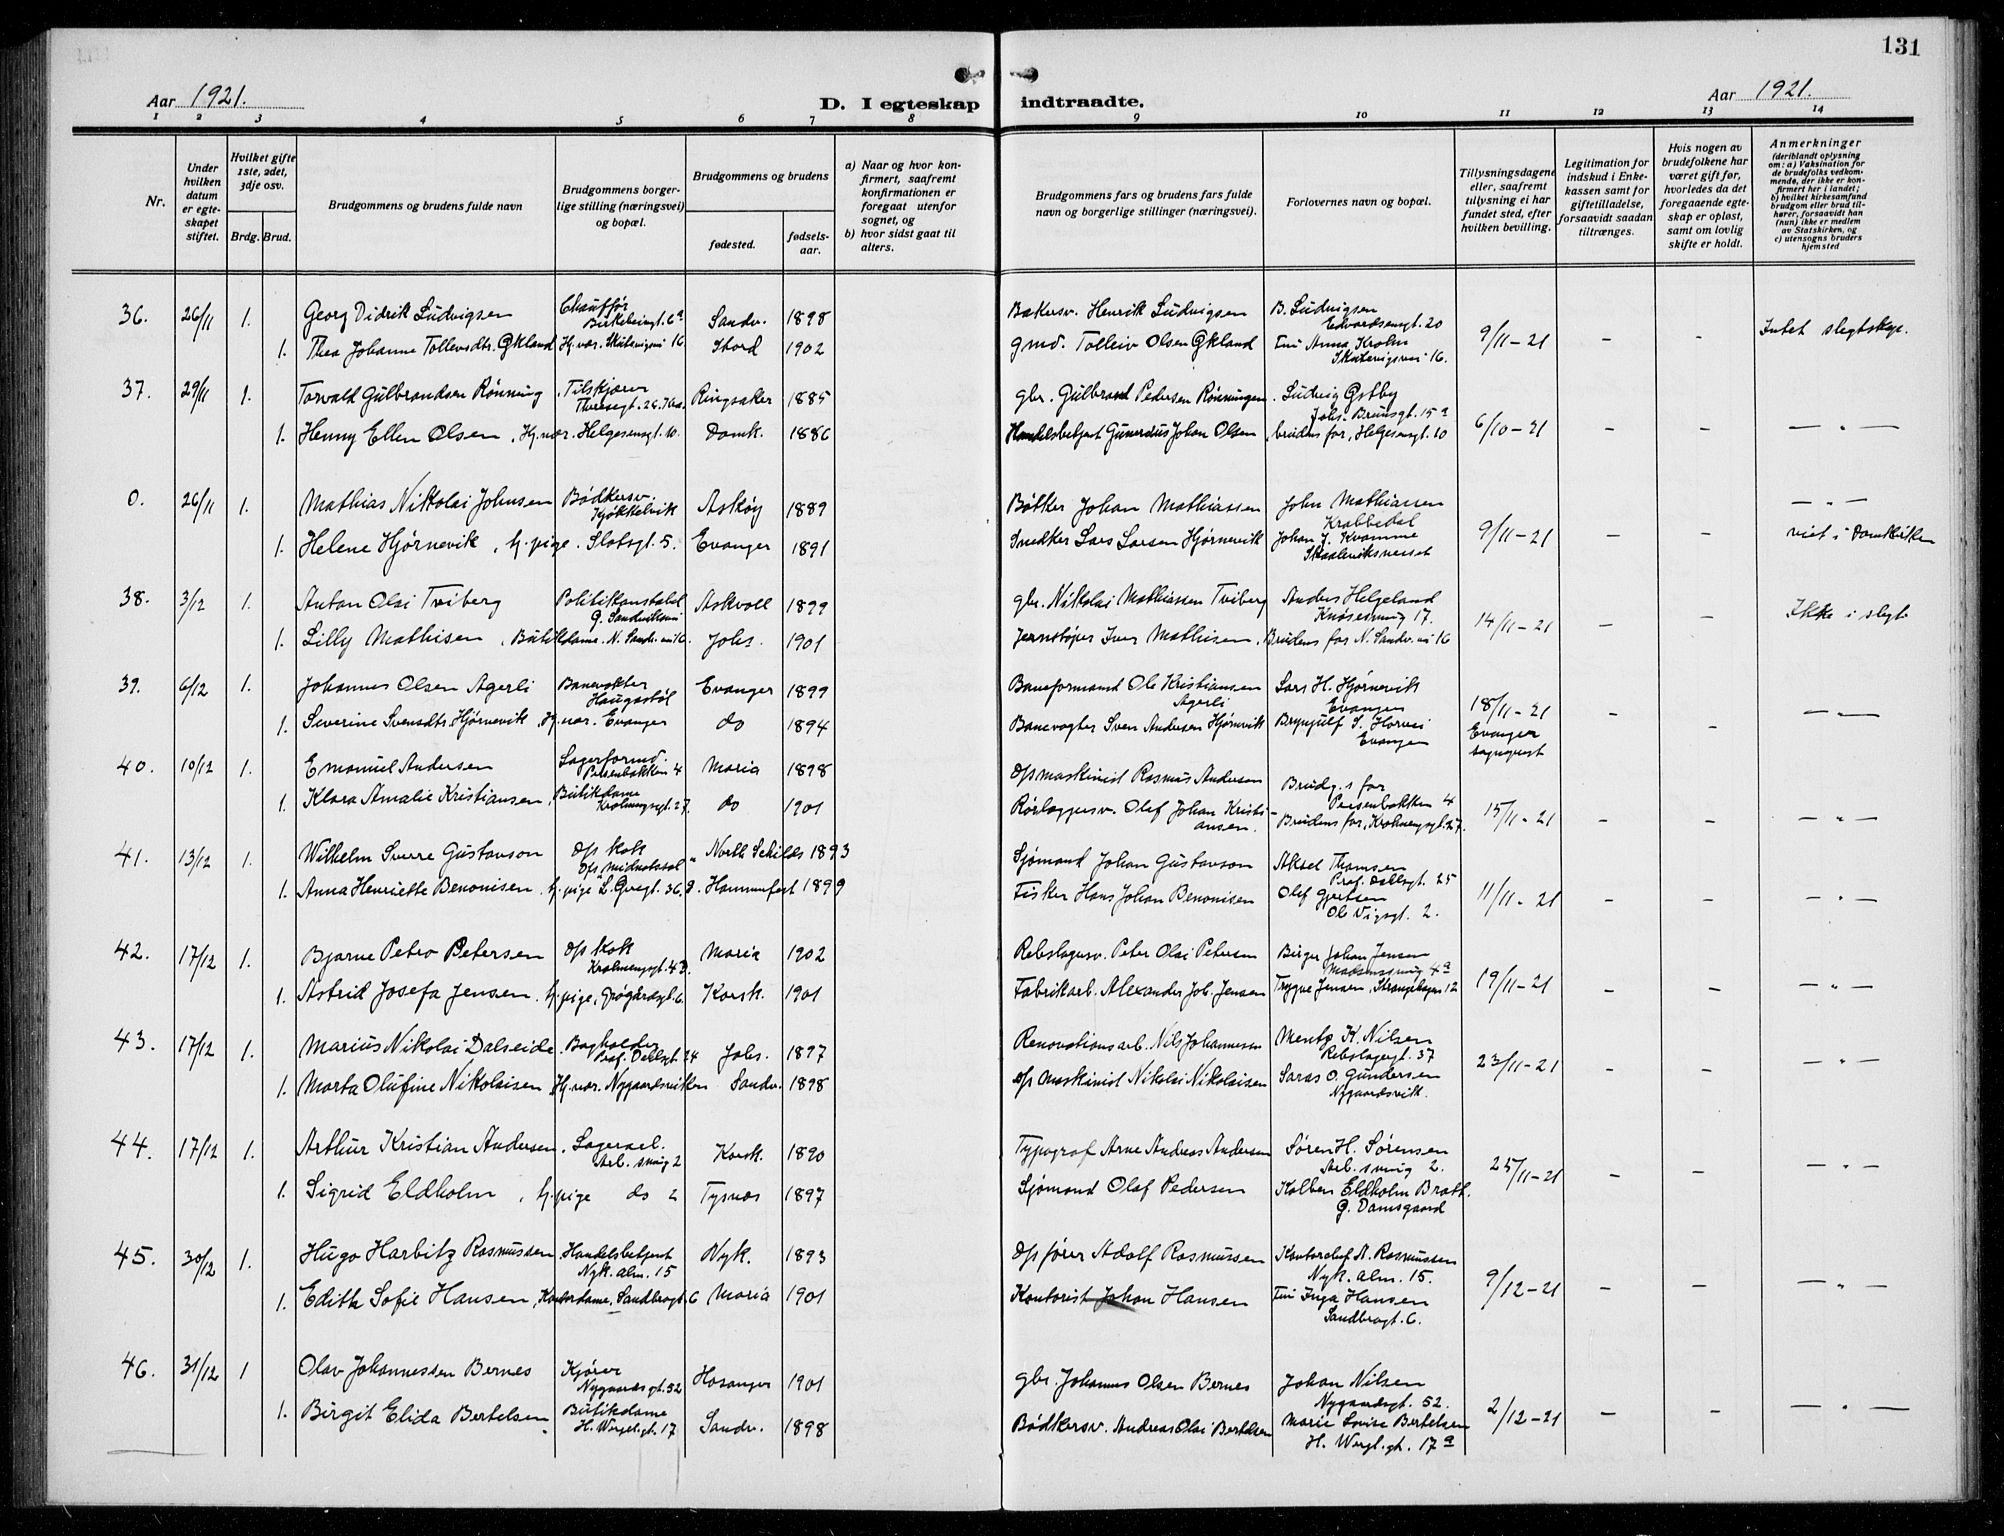 131
Aar 1921.
D. I egteskap indtraadte.
Aar 1921.
1 2 3 4 5 6 7 8 9 10 11 12 13 14
Nr.
Under hvilken datum er egteskapet stiftet.
Hvilket gifte 1ste, 2det, 3dje osv.
Brdg. Brud.
Brudgommens og brudens fulde navn
Brudgommens borgerlige stilling (næringsvei) og bopæl.
Brudgommens og brudens
fødested.
fødselsaar.
a) Naar og hvor konfirmert, saafremt konfirmationen er foregaat utenfor sognet, og
b) hvor sidst gaat til alters.
Brudgommens fars og brudens fars fulde navn og borgerlige stillinger (næringsvei).
Forlovernes navn og bopæl.
Tillysningsdagene eller, saafremt tillysning ei har fundet sted, efter hvilken bevilling.
Legitimation for indskud i Enkekassen samt for giftetilladelse, forsaavidt saadan tiltrænges.
Hvis nogen av brudefolkene har været gift før, hvorledes da det foregaaende egteskap er opløst, samt om lovlig skifte er holdt.
Anmerkninger
(deriblandt oplysning om: a) Vaksination for de brudefolks vedkommende, der ikke er konfirmert her i landet; b) hvilket kirkesamfund brudgom eller brud tilhører, forsaavidt han (hun) ikke er medlem av Statskirken, og c) utensogns bruders hjemsted
36. 26/11 1. Georg Didrik Ludvigsen Chauffør Birkebeingt. 6a Sandv. 1898 Bakersv. Henrik Ludvigsen B. Ludvigsen Edvardsensgt. 20 9/11-21 - - Intet slegtskap.
1. Thea Johanne Tollevsdtr. Økland Hj. vær. Skutevigsvei 16 Stord 1902 gmd. Tolleiv Olsen Økland Fru Anna Krohn Skutevigsvei 16.
37. 29/11 1. Torvald Gulbrandsen Rønning, Tilskjærer Ringsaker 1885 gbr. Gulbrand Pedersen Rønningen. Ludvig Østby Johs. Brunsgt. 15a 6/10-21 - - - " -
1. Henny Ellen Olsen, Hj. vær. Helgesensgt. 10. Domk. 1886 Handelsbetjent Gunerius Johan Olsen, brudens far, Helgesensgt. 10
0. 26/11 1. Mathias Nikolai Johnsen Bødkersv. Kjøkkelvik Askøy 1889 Bøtker Johan Mathiassen John Mathiassen Krabbedal 9/11-21 - - - " -
1. Helene Hjørnevik, hj. pige. Slotsgt. 5. Evanger 1891 Snedker Lars Larsen Hjørnevik Johan J. Kvamme viet i Domkirken
38. 3/12 1. Anton Olai Tviberg Politikonstabel G. Sandviksvei Askvoll 1899 gbr. Nikolai Mathiassen Tviberg Anders Helgeland Knøsesmug 17. 14/11-21 - - Ikke i slegt
1. Lilly Mathisen, Butikdame. N. Sandv.vei 16. Johs. 1901 Jernstøper Iver Mathisen, Brudens far N. Sandv.vei 16
39. 6/12 1. Johannes Olsen Agerli Banevokter Haugastøl Evanger 1899 Baneformand Ole Kristiansen Agerli Lars H. Hjørnevik Evanger 18/11-21 Evanger - - - " -
1. Severine Svensdtr. Hjørnevik, Hj. vær. Evanger do 1894 Banevogter Sven Andersen Hjørnevik Brynjulf S. Horvei Evanger
40. 10/12 1. Emanuel Andersen Lagerformd. Persenbakken 4 Maria 1898 D/s maskinist Rasmus Andersen Brudg.s far Persenbakken 4 15/11-21 - - - " -
1. Klara Amalie Kristiansen, Butikdame Krohnengsgt. 27. do 1901 Rørlæggersv. Olef Johan Kristiansen. Brudens far, Krohnengsgt. 27.
41. 13/12 1. Wilhelm Sverre Gustavson D/s kok D/s Midnatssol North Schilds 1893 Sjømand Johan Gustavson Aksel Thomsen Prof. Dahlsgt. 25 11/11-21 - - - " -
1. Anna Henriette Benonisen. hj. pige L. Øvregt. 36. Hammerfest 1899 Fisker Hans Johan Benonisen Olef Gjertsen Ole Vigsgt. 2.
42. 17/12 1. Bjarne Petro Petersen D/s kok Krohnengsgt. 43. Maria 1902 Rebslagersv. Peter Olai Petersen Birger Johan Jensen Madsensmug 4a 19/11-21 - - - " -
1. Astrid Josefa Jensen. hj. pige, Korsk. 1901 Fabrikarb. Alexander Joh. Jensen Trygve Jensen, Strangehagen 12
43. 17/12 1. Marius Nikolai Dalseide. Bogholder Prof. Dahlsgt. 24 Johs. 1897 Renovationsarb. Nils Johannesen Mentz K. Nilsen Rebslagergt. 37 23/11-21 - - - " -
1. Marta Olufine Nikolaisen Hj. vær. Nygaardsviken Sandv. 1898 D/s Maskinist Nikolai Nikolaisen Lars O. Gundersen Nygaardsvik.
44. 17/12 1. Arthur Kristian Andersen. Lagerarb. Arb. smug 2 Korsk. 1890 Typograf Arne Andreas Andersen Søren H. Sørensen Arb. smug 2. 25/11-21 - - - " -
1. Sigrid Eldholm, hj. pige do 2 Tysnes 1897 Sjømand Olaf Pedersen Kolben Eldholm Bratt. G. Damsgaard
45. 30/12 1. Hugo Harbitz Rasmussen Handelsbetjent Nyk. alm. 15 Nyk. 1893 D/s fører Adolf Rasmussen Kontorchef A. Rasmussen Nyk. alm. 15. 9/12-21 - - - " -
1. Edith Sofie Hansen, Kontordame, Sandbrogt. 6 Maria 1901 Kontorist Johan Hansen Fru Inga Hansen Sandbrogt. 6.
46. 31/12 1 Olav Johannessen Bernes Kjører Nygaardsgt. 52 Hosanger 1901 gbr. Johannes Olsen Bernes Johan Nilsen Nygaardsgt. 52. 2/12-21 - - - " -
1. Birgit Elida Bertelsen Butikdame H. Wergel.gt. 17 Sandv. 1898 Bødkersv. Andreas Olai Bertelsen Marie Lovise Bertelsen H. Wergl. gt. 17a